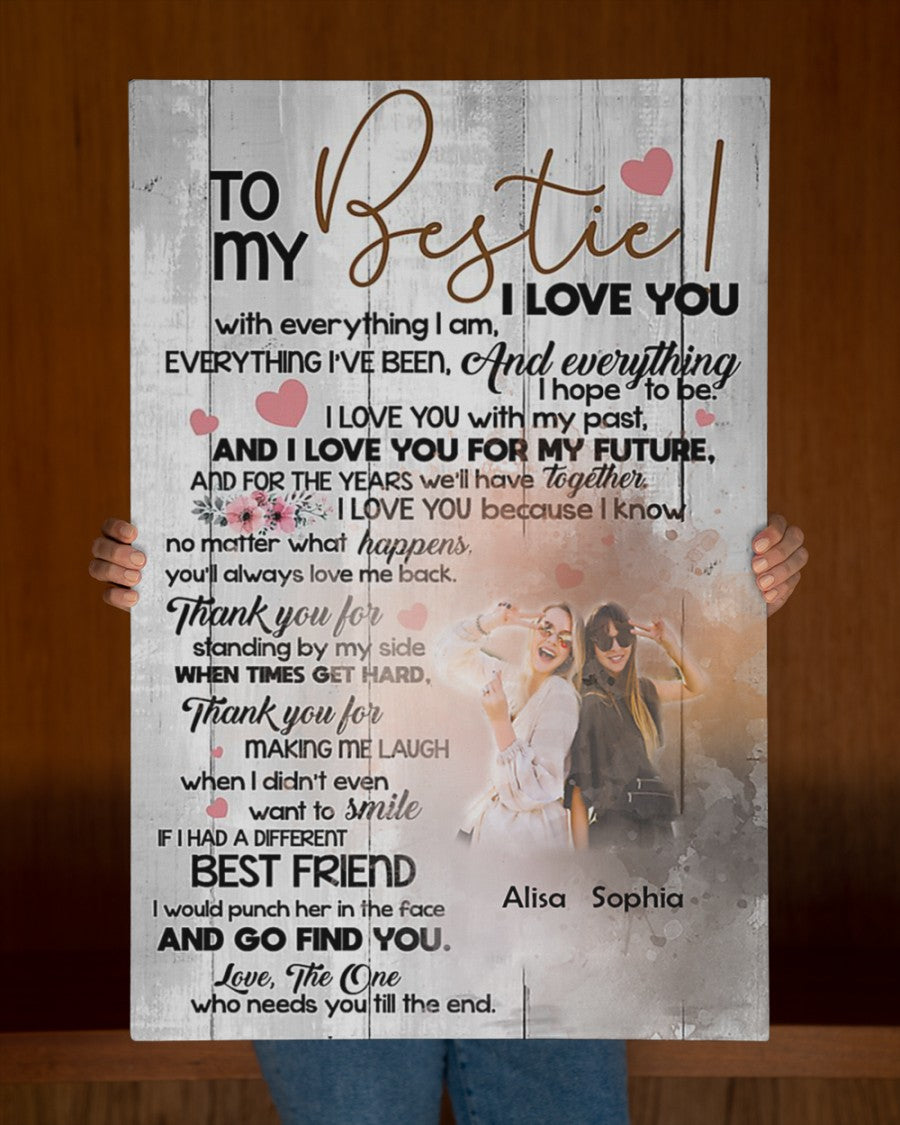 TO MY Bestie!
I LOVE YOU
with everything I am,
EVERYTHING I'VE BEEN, And everything
I hope to be.
I LOVE YOU with my past,
AND I LOVE YOU FOR MY FUTURE,
AND FOR THE YEARS we'll have together.
I LOVE YOU because I know
no matter what happens,
you'll always love me back.
Thank you for
standing by my side
WHEN TIMES GET HARD,
Thank you for
MAKING ME LAUGH
when I didn't even
want to smile
IF I HAD A DIFFERENT
BEST FRIEND
I would punch her in the face
AND GO FIND YOU.
Love, The One
who needs you till the end.
Alisa Sophia